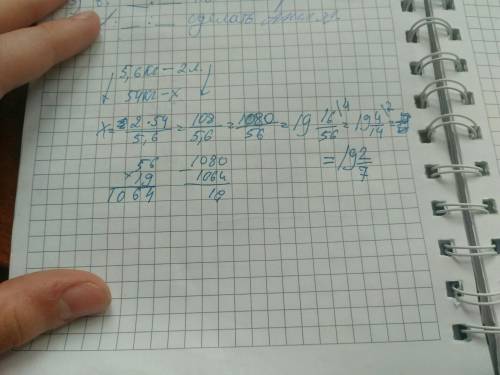 сделать
5,6 кг - 2 л
54 кг - x
x = 2·54/5,6 = 108/5,6 = 1080/56 = 19 16/56 \4 = 19 4/14 \2 =
= 19 2/7
56
× 19
1064
1080
1064